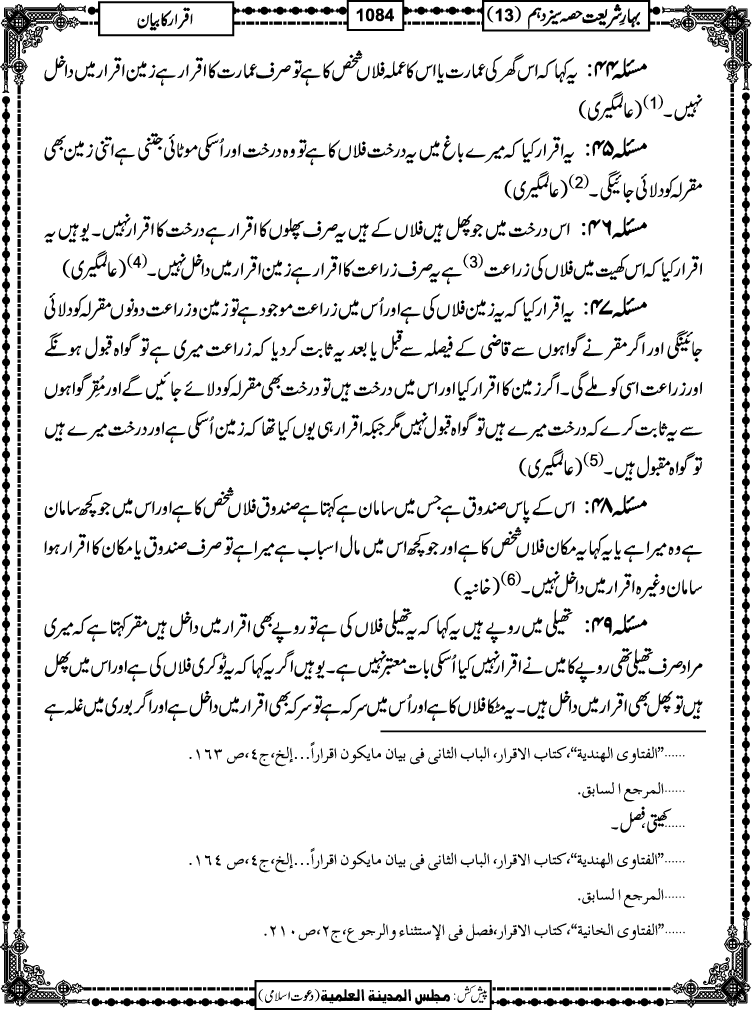 بہارِ شریعت حصہ سیزدہم (13)
1084
اقرار کا بیان
مسئلہ ۴۴: یہ کہا کہ اس گھر کی عمارت یا اس کا عملہ فلاں شخص کا ہے تو صرف عمارت کا اقرار ہے زمین اقرار میں داخل
نہیں۔(1) (عالمگیری)
مسئلہ ۴۵: یہ اقرار کیا کہ میرے باغ میں یہ درخت فلاں کا ہے تو وہ درخت اور اُسکی موٹائی جتنی ہے اتنی زمین بھی
مقرلہ کو دلائی جائیگی۔(2) (عالمگیری)
مسئلہ ۴۶: اس درخت میں جو پھل ہیں فلاں کے ہیں یہ صرف پھلوں کا اقرار ہے درخت کا اقرار نہیں۔ یوہیں یہ
اقرار کیا کہ اس کھیت میں فلاں کی زراعت(3) ہے یہ صرف زراعت کا اقرار ہے زمین اقرار میں داخل نہیں۔(4) (عالمگیری)
مسئلہ ۴۷: یہ اقرار کیا کہ یہ زمین فلاں کی ہے اور اُس میں زراعت موجود ہے تو زمین و زراعت دونوں مقرلہ کو دلائی
جائینگی اور اگر مقر نے گواہوں سے قاضی کے فیصلہ سے قبل یا بعد یہ ثابت کردیا کہ زراعت میری ہے تو گواہ قبول ہونگے
اور زراعت اسی کو ملے گی۔ اگر زمین کا اقرار کیا اور اس میں درخت ہیں تو درخت بھی مقرلہ کو دلائے جائیں گے اور مُقِر گواہوں
سے یہ ثابت کرے کہ درخت میرے ہیں تو گواہ قبول نہیں مگر جبکہ اقرار ہی یوں کیا تھا کہ زمین اُسکی ہے اور درخت میرے ہیں
تو گواہ مقبول ہیں۔(5) (عالمگیری)
مسئلہ ۴۸: اس کے پاس صندوق ہے جس میں سامان ہے کہتا ہے صندوق فلاں شخص کا ہے اور اس میں جو کچھ سامان
ہے وہ میرا ہے یا یہ کہا یہ مکان فلاں شخص کا ہے اور جو کچھ اس میں مال اسباب ہے میرا ہے تو صرف صندوق یا مکان کا اقرار ہوا
سامان وغیرہ اقرار میں داخل نہیں۔(6) (خانیہ)
مسئلہ ۴۹: تھیلی میں روپے ہیں یہ کہا کہ یہ تھیلی فلاں کی ہے تو روپے بھی اقرار میں داخل ہیں مقر کہتا ہے کہ میری
مراد صرف تھیلی تھی روپے کا میں نے اقرار نہیں کیا اُسکی بات معتبر نہیں ہے۔ یوہیں اگر یہ کہا کہ یہ ٹوکری فلاں کی ہے اور اس میں پھل
ہیں تو پھل بھی اقرار میں داخل ہیں۔ یہ مٹکا فلاں کا ہے اور اُس میں سرکہ ہے تو سرکہ بھی اقرار میں داخل ہے اور اگر بوری میں غلہ ہے
......"الفتاوی الهندية"،كتاب الاقرار، الباب الثانی فی بيان مايكون اقراراً...إلخ،ج٤،ص ١٦٣.
......المرجع السابق.
......کھیتی، فصل۔
......"الفتاوی الهندية"،كتاب الاقرار، الباب الثانی فی بيان مايكون اقراراً...إلخ،ج٤،ص ١٦٤.
......المرجع السابق.
......"الفتاوی الخانية"،كتاب الاقرار،فصل فی الإستثناء والرجوع،ج٢،ص٢١٠.
پیش کش: مجلس المدینۃ العلمیۃ (دعوت اسلامی)